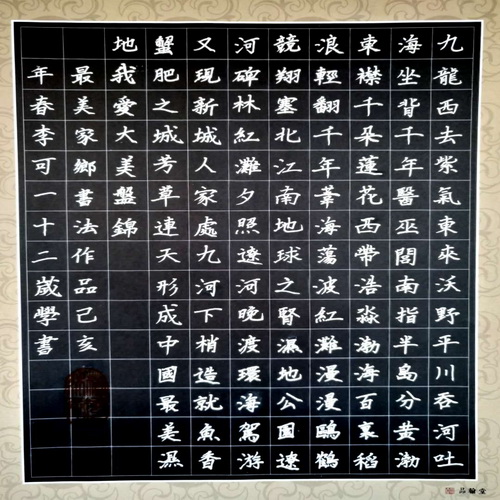 九龍西去紫氣東來沃野平川吞河吐
海坐背千年醫巫閭南指半島分黃渤
東襟千朵蓮花西帶浩淼渤海百裏稻
浪輕翻千年葦海蕩波紅灘漫漫鷗鶴
競翔塞北江南地球之腎濕地公園遼
河碑林紅灘夕照遼河晚渡環海駕游
又現新城人家處九河下梢造就魚香
蟹肥之城芳草連天形成中國最美濕
地我愛大美盤錦
最美家鄉書法作品己亥
年春李可一十二歲學書
品翰堂